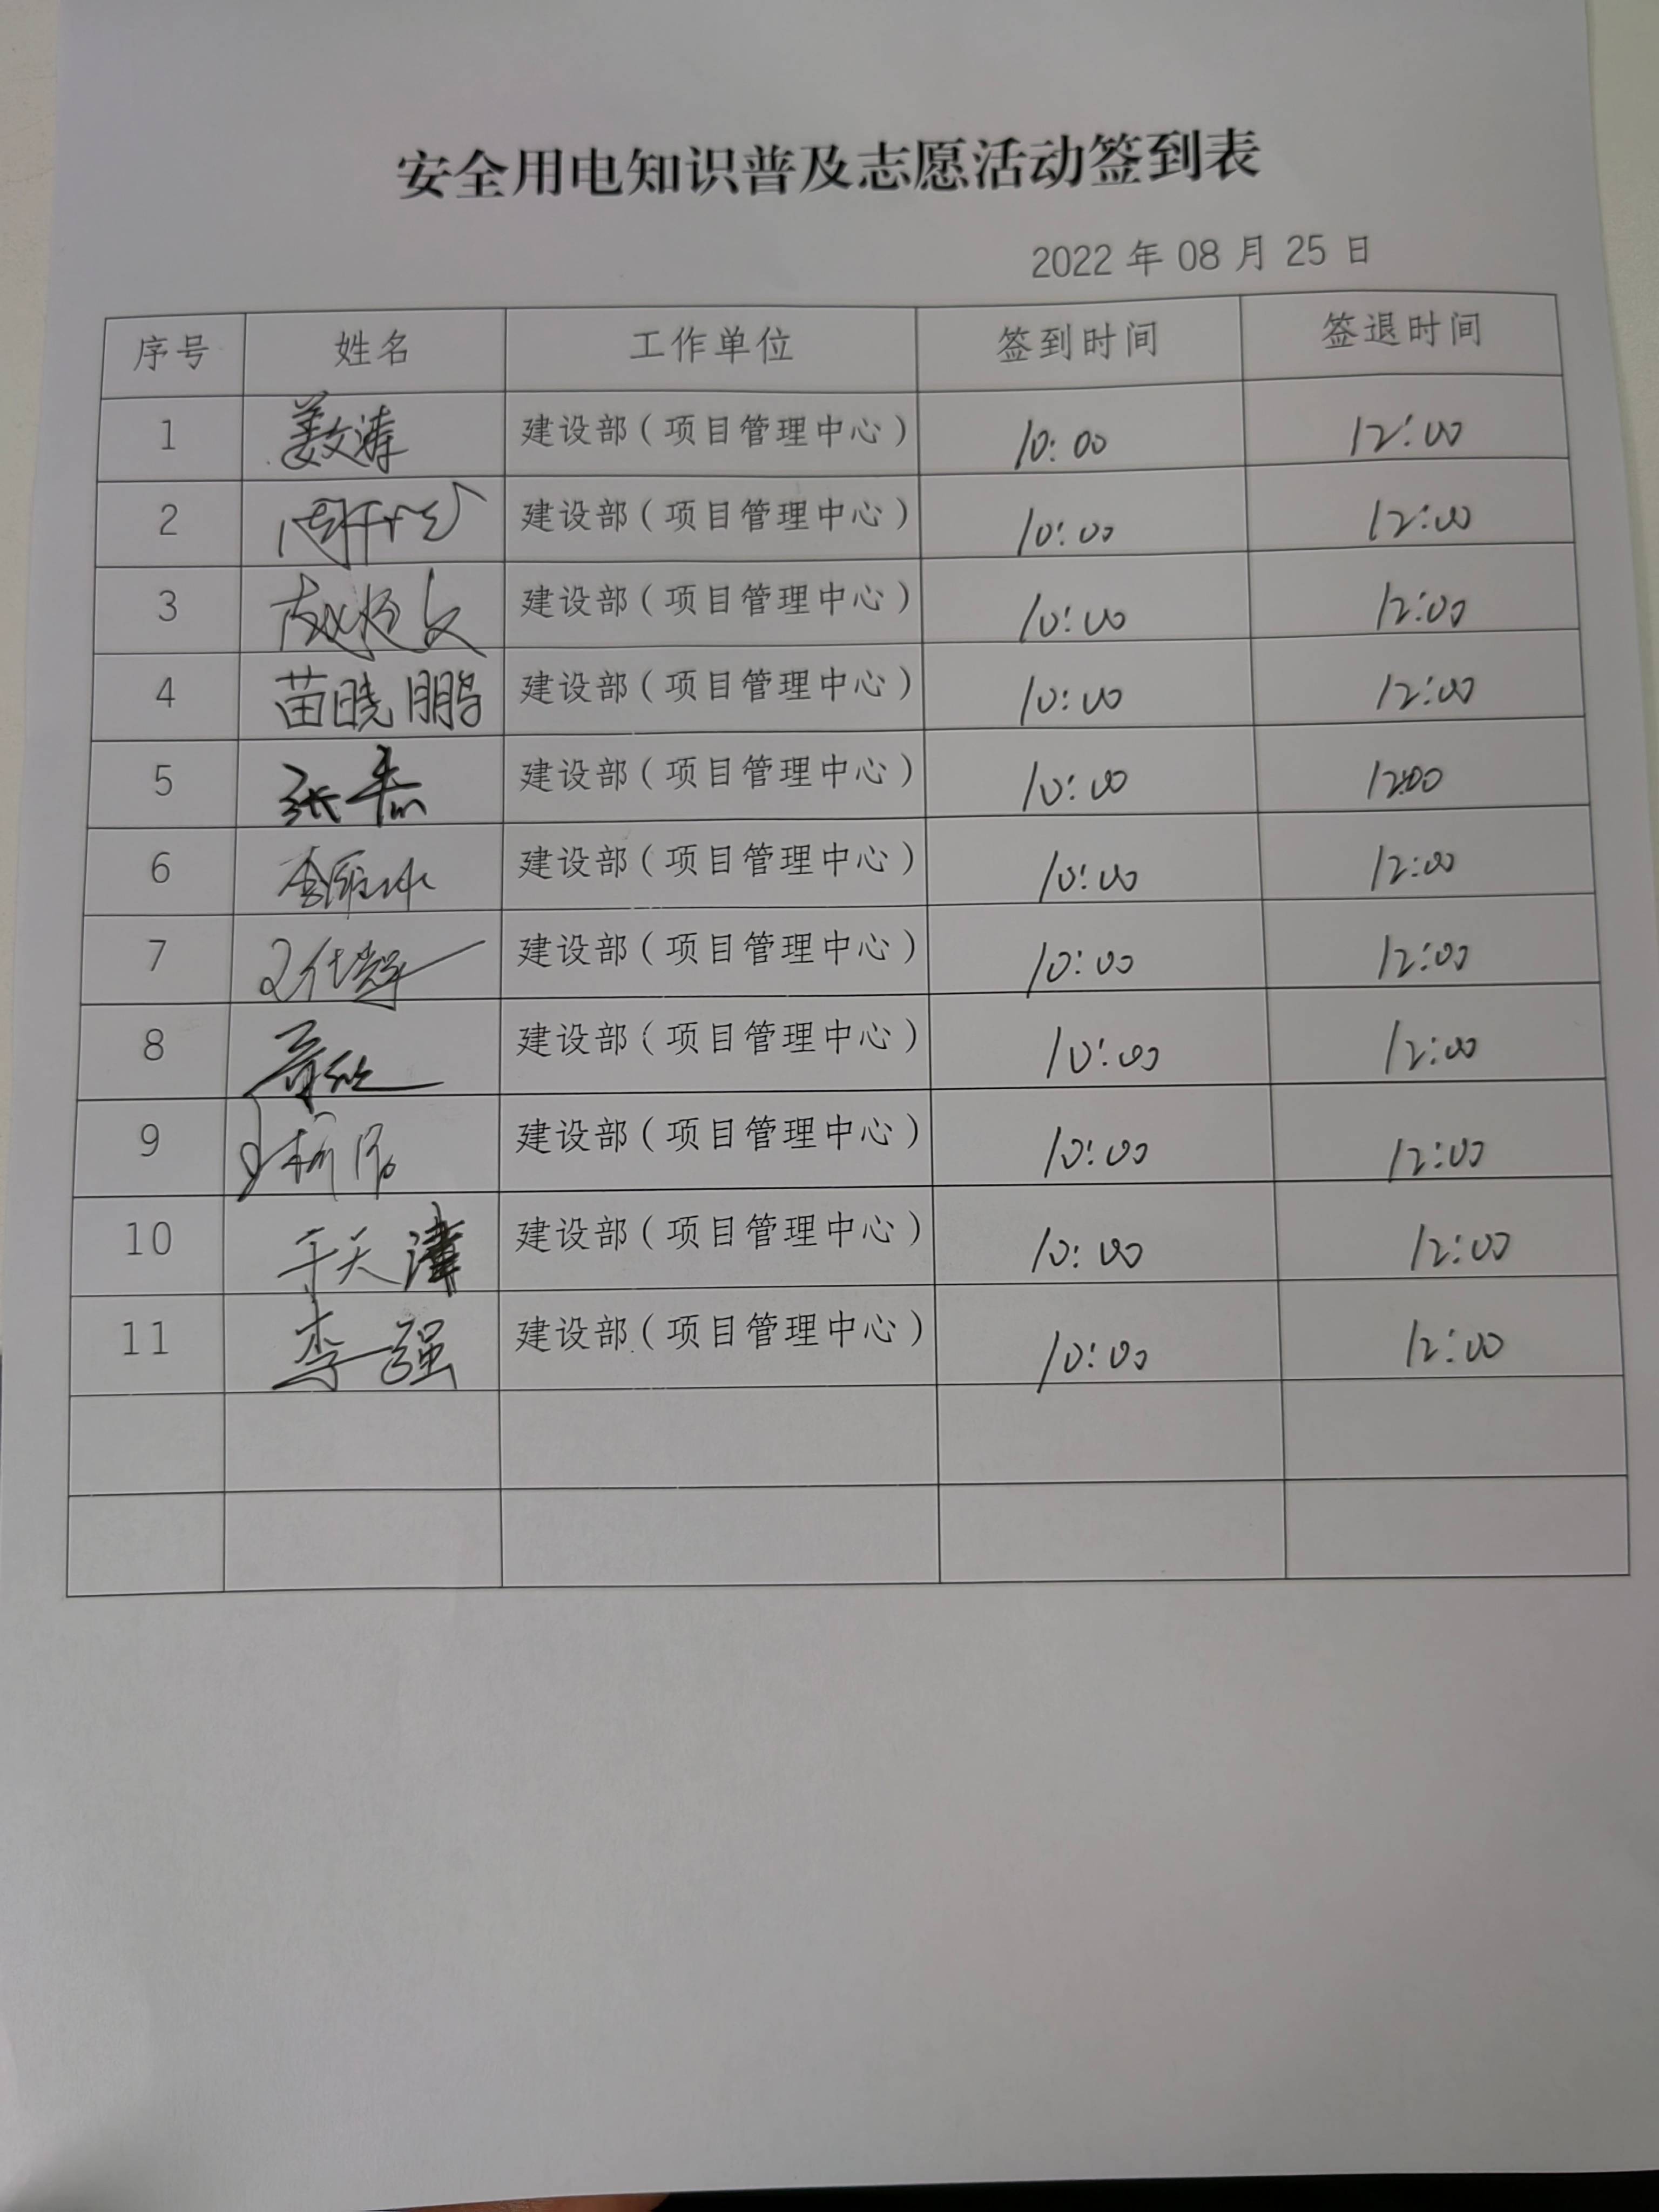 安全用电知识普及志愿活动签到表
2022 年 08 月 25 日
序号 姓名 工作单位 签到时间 签退时间
1 姜文涛 建设部（项目管理中心） 10:00 12:00
2 建设部（项目管理中心） 10:00 12:00
3 建设部（项目管理中心） 10:00 12:00
4 苗晓鹏 建设部（项目管理中心） 10:00 12:00
5 建设部（项目管理中心） 10:00 12:00
6 建设部（项目管理中心） 10:00 12:00
7 建设部（项目管理中心） 10:00 12:00
8 建设部（项目管理中心） 10:00 12:00
9 建设部（项目管理中心） 10:00 12:00
10 于天 建设部（项目管理中心） 10:00 12:00
11 李强 建设部（项目管理中心） 10:00 12:00